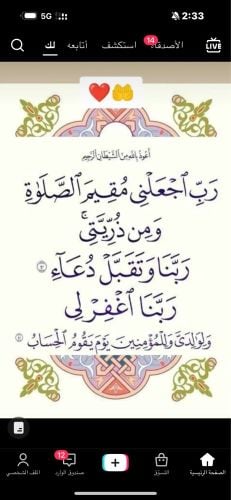 5G
2:33
LIVE
الأصدقاء
14
استكشف
أتابعه
لك
أعوذ بالله من الشيطان الرجيم
رَبِّ ٱجۡعَلۡنِي مُقِيمَ ٱلصَّلَوٰةِ
وَمِن ذُرِّيَّتِيۚ
رَبَّنَا وَتَقَبَّلۡ دُعَآءِ
رَبَّنَا ٱغۡفِرۡ لِي
وَلِوَٰلِدَيَّ وَلِلۡمُؤۡمِنِينَ يَوۡمَ يَقُومُ ٱلۡحِسَابُ
الصفحة الرئيسية
التسوّق
صندوق الوارد
12
الملف الشخصي